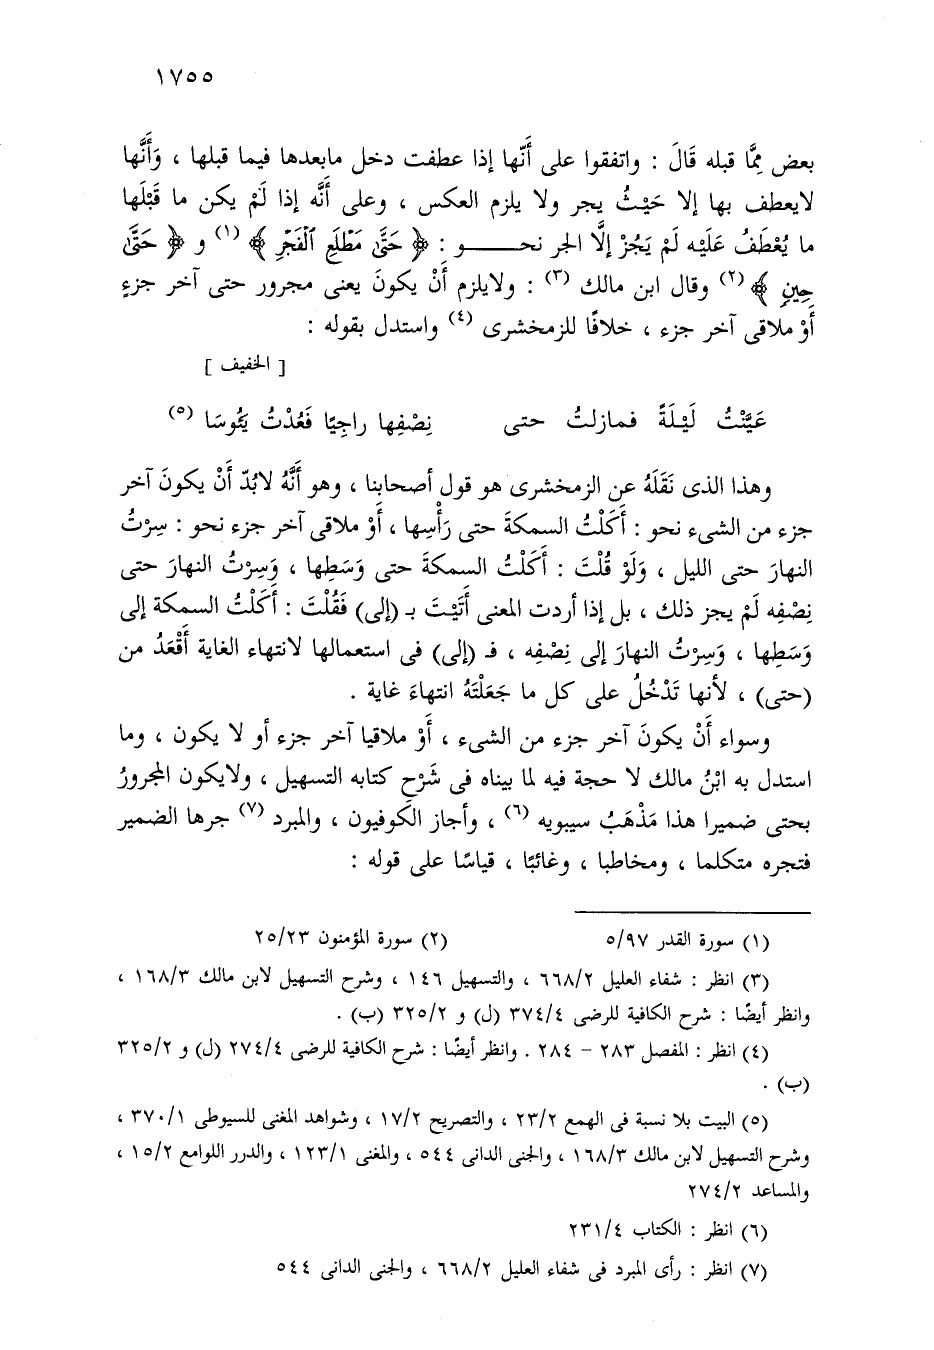 ١٧٥٥
بعض مِمَّا قبله قَالَ : واتفقوا على أَنّها إذا عطفت دخل مابعدها فيما قبلها ، وَأَنَّها
لايعطف بها إلا حَيْثُ يجر ولا يلزم العكس ، وعلى أَنَّه إذا لَمْ يكن ما قَبْلَها
ما يُعْطَفُ عَلَيْه لَمْ يَجُزْ إلَّا الجر نحـــــو : ﴿ حَتَّىٰ مَطْلَعِ ٱلْفَجْرِ ﴾ (١) و ﴿ حَتَّىٰ
حِينٍ ﴾ (٢) وقال ابن مالك (٣) : ولايلزم أَنْ يكونَ يعنى مجرور حتى آخر جزءٍ
أوْ ملاقى آخر جزء ، خلافًا للزمخشرى (٤) واستدل بقوله :
[ الخفيف ]
عَيَّنْتُ لَيْلَةً فمازلتُ حتى نِصْفِها راجِيًا فَعُدْتُ يَئُوسَا (٥)
وهذا الذى نَقَلَهُ عن الزمخشرى هو قول أصحابنا ، وهو أَنَّهُ لابُدّ أَنْ يكونَ آخر
جزء من الشىء نحو : أَكَلْتُ السمكةَ حتى رَأْسِها ، أَوْ ملاقى آخر جزء نحو : سِرْتُ
النهارَ حتى الليل ، وَلَوْ قُلْتَ : أَكَلْتُ السمكةَ حتى وَسَطِها ، وَسِرْتُ النهارَ حتى
نِصْفِه لَمْ يجز ذلك ، بل إذا أردت المعنى أَتَيْتَ بـ (إلى) فَقُلْتَ : أَكَلْتُ السمكة إلى
وَسَطِها ، وَسِرْتُ النهارَ إلى نِصْفِه ، فـ (إلى) فى استعمالها لانتهاء الغاية أَقْعَدُ من
(حتى) ، لأنها تَدْخُلُ على كل ما جَعَلْتَهُ انتهاءَ غاية .
وسواء أَنْ يكونَ آخر جزء من الشىء ، أَوْ ملاقيا آخر جزء أو لا يكون ، وما
استدل به ابْنُ مالك لا حجة فيه لما بيناه فى شَرْحِ كتابه التسهيل ، ولايكون المجرورُ
بحتى ضميرا هذا مَذْهَبُ سيبويه (٦) ، وأجاز الكوفيون ، والمبرد (٧) جرها الضمير
فتجره متكلما ، ومخاطبا ، وغائبًا ، قياسًا على قوله :
(١) سورة القدر ٥/٩٧ (٢) سورة المؤمنون ٢٥/٢٣
(٣) انظر : شفاء العليل ٦٦٨/٢ ، والتسهيل ١٤٦ ، وشرح التسهيل لابن مالك ١٦٨/٣ ،
وانظر أيضًا : شرح الكافية للرضى ٣٧٤/٤ (ل) و ٣٢٥/٢ (ب) .
(٤) انظر : المفصل ٢٨٣ – ٢٨٤ . وانظر أيضًا : شرح الكافية للرضى ٢٧٤/٤ (ل) و ٣٢٥/٢
(ب) .
(٥) البيت بلا نسبة فى الهمع ٢٣/٢ ، والتصريح ١٧/٢ ، وشواهد المغنى للسيوطى ٣٧٠/١ ،
وشرح التسهيل لابن مالك ١٦٨/٣ ، والجنى الدانى ٥٤٤ ، والمغنى ١٢٣/١ ، والدرر اللوامع ١٥/٢ ،
والمساعد ٢٧٤/٢
(٦) انظر : الكتاب ٢٣١/٤
(٧) انظر : رأى المبرد فى شفاء العليل ٦٦٨/٢ ، والجنى الدانى ٥٤٤